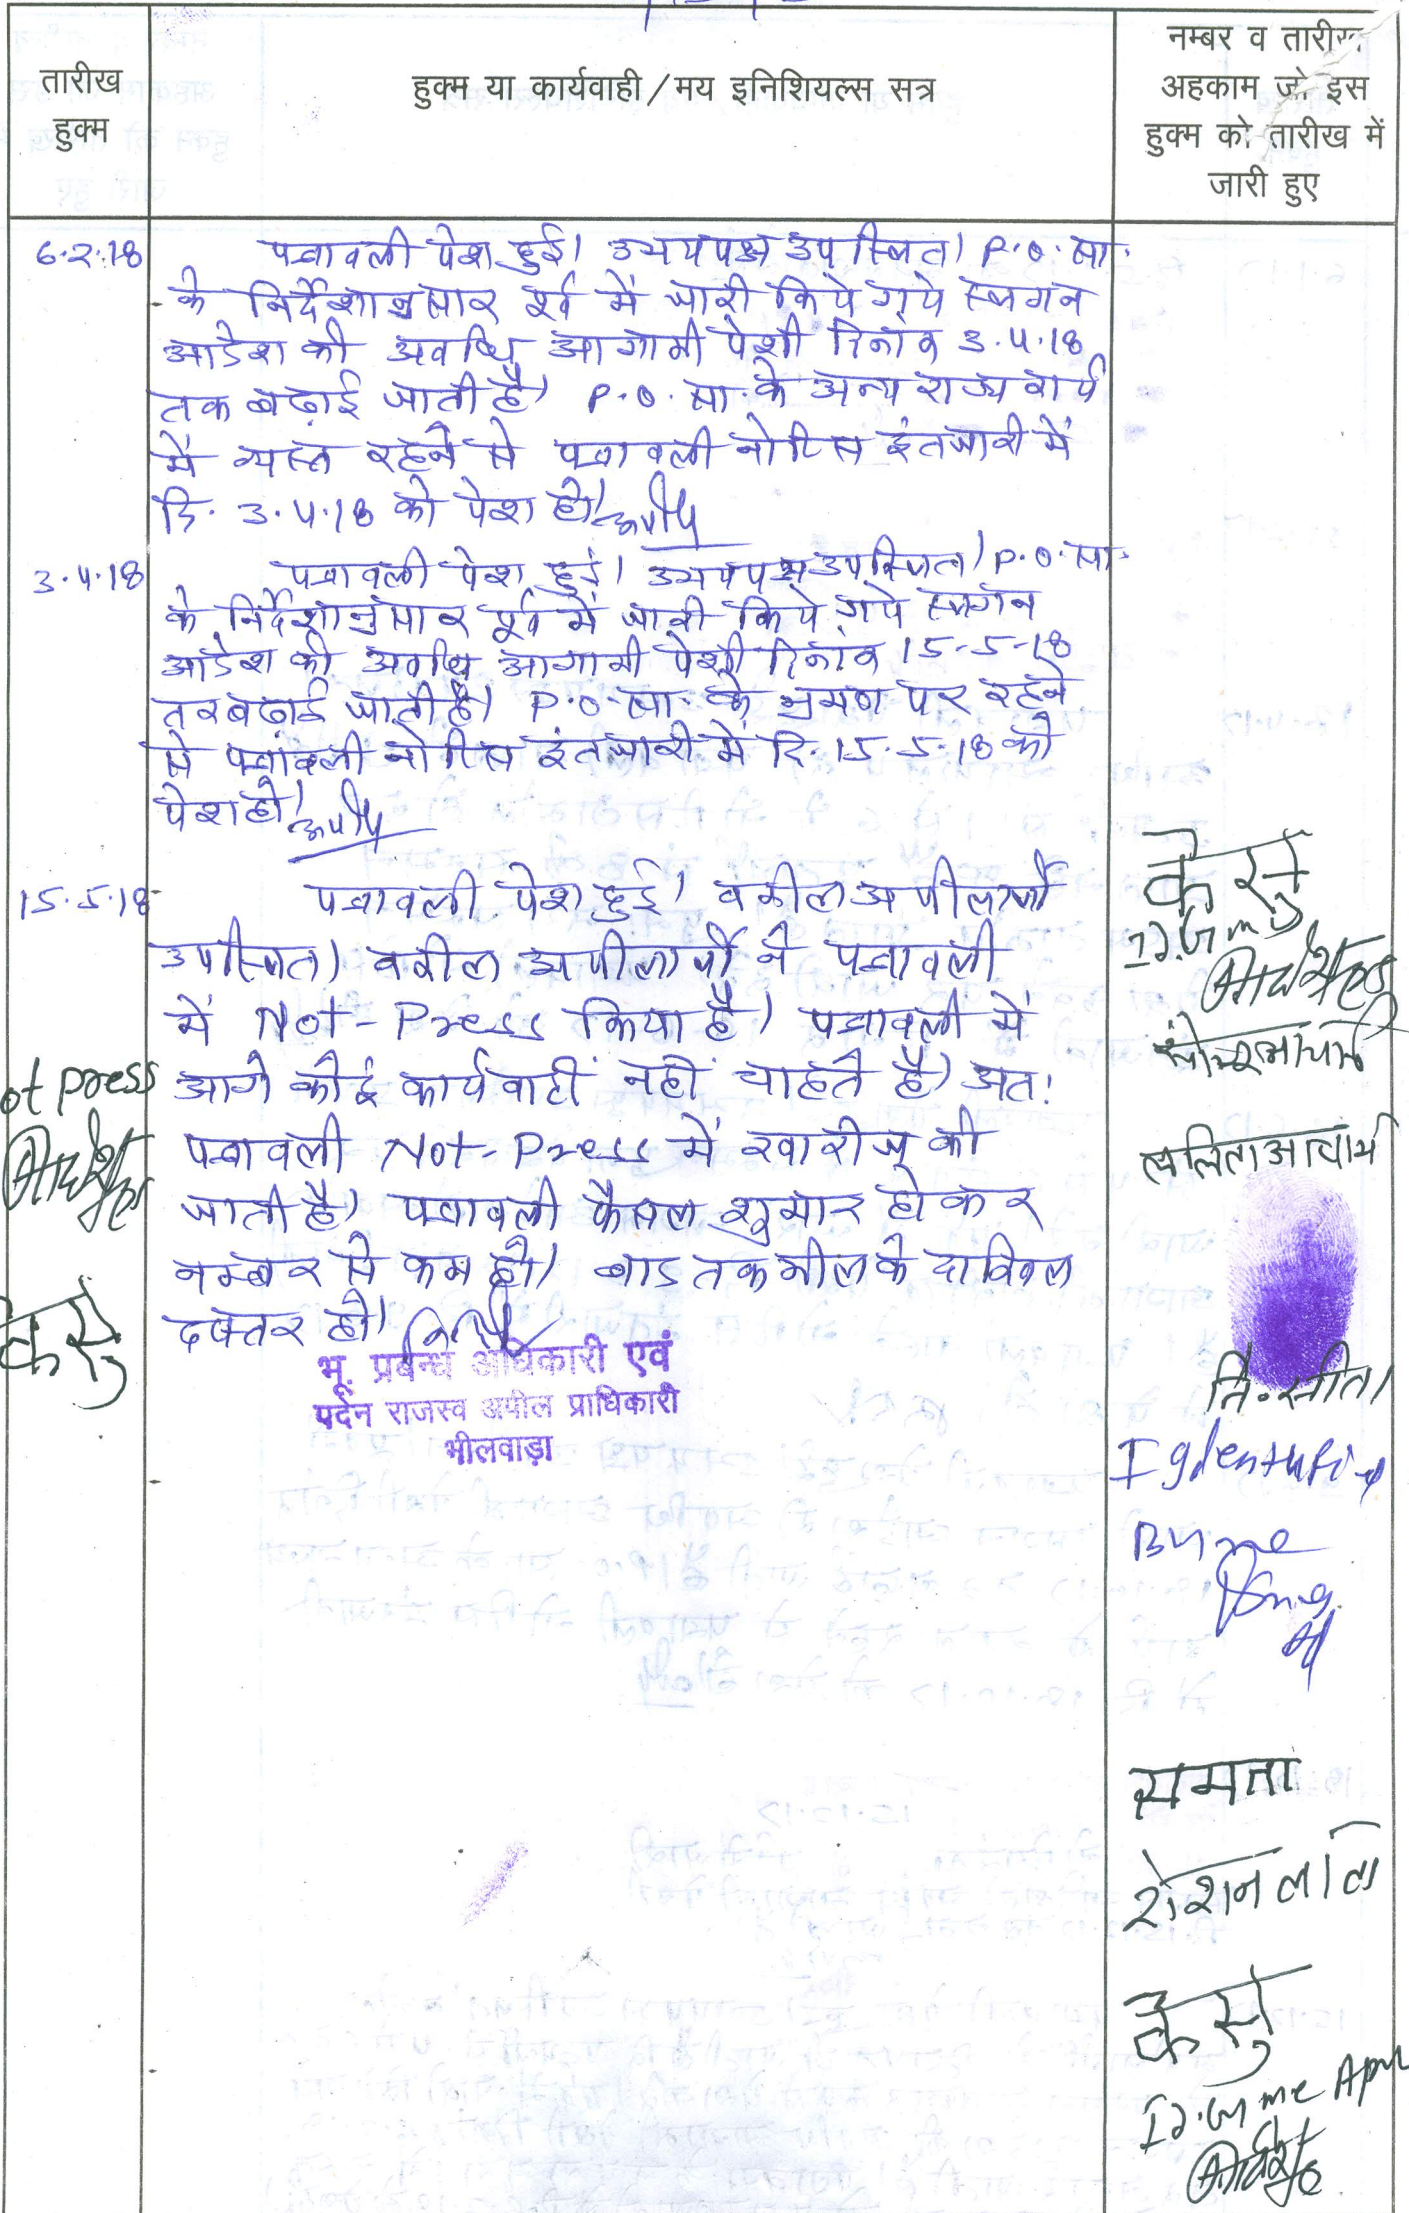 तारीख
हुक्म
हुक्म या कार्यवाही/मय इनिशियल्स सत्र
नम्बर व तारीख
अहकाम जो इस
हुक्म को तारीख में
जारी हुए
6.2.18
पत्रावली पेश हुई। उभयपक्ष उपस्थित। P.O. सा.
के निर्देशानुसार पूर्व में जारी किये गये स्थगन
आदेश की अवधि आगामी पेशी दिनांक 3.4.18
तक बढ़ाई जाती है। P.O. सा. के अन्य राज्य कार्य
में व्यस्त रहने से पत्रावली नोटिस इंतजारी में
दि. 3.4.18 को पेश हो।
3.4.18
पत्रावली पेश हुई। उभयपक्ष उपस्थित। P.O. सा.
के निर्देशानुसार पूर्व में जारी किये गये स्थगन
आदेश की अवधि आगामी पेशी दिनांक 15-5-18
तक बढ़ाई जाती है। P.O. सा. के भ्रमण पर रहने
से पत्रावली नोटिस इंतजारी में दि. 15.5.18 को
पेश हो।
15.5.18
पत्रावली पेश हुई। वकील अपीलार्थी
उपस्थित। वकील अपीलार्थी ने पत्रावली
में Not-Press किया है। पत्रावली में
आगे कोई कार्यवाही नहीं चाहते है। अत:
पत्रावली Not-Press में खारीज की
जाती है। पत्रावली फैसल शुमार होकर
नम्बर से कम हो। बाद तकमील के दाखिल
दफ्तर हो।
भू. प्रबन्ध अधिकारी एवं
पदेन राजस्व अपील प्राधिकारी
भीलवाड़ा
ot press
केसु
केसु
ललिता आचार्य
नि. सीता
By me
ममता
रोशन लाल
केसु